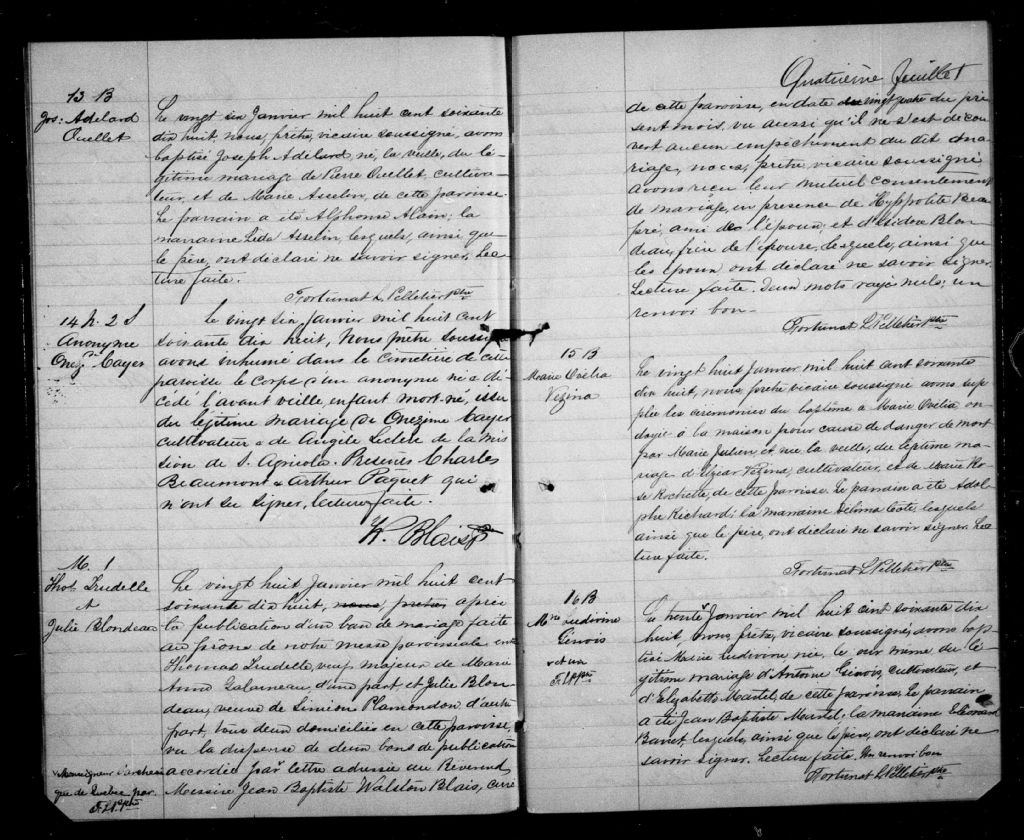 13 B
Jos: Adelard
Ouellet
Le vingt six Janvier mil huit cent soixante
dix huit nous, prêtre, vicaire soussigné, avons
baptisé Joseph Adélard, né, la veille, du lé-
gitime mariage de Pierre Ouellet, cultiva-
teur, et de Marie Asselin, de cette paroisse.
Le parrain a été Alphonse Alain; la
marraine Léda Asselin, lesquels, ainsi que
le père, ont déclaré ne savoir signer. Lec-
ture faite.
Fortunat L Pelletier Ptre
14 2 S
Anonyme
Onez. Cayer
Le vingt six Janvier mil huit cent
soixante dix huit, Nous prêtre soussigné
avons inhumé dans le cimetière de cette
paroisse le corps d'un anonyme né & dé-
cédé l'avant veille, enfant mort-né, issu
du légitime mariage de Onezime Cayer
cultivateur & de Angèle Leclerc de la mis
sion de S. Agricole. Présents Charles
Beaumont & Arthur Paquet qui
n'ont su signer, lecture faite.
K. Blais Ptre
M. 1
Thos Trudelle
&
Julie Blondeau
Le vingt huit Janvier mil huit cent
soixante dix huit, nous, prêtre, après
la publication d'un ban de mariage faite
au prône de notre messe paroissiale entre
Thomas Trudelle, veuf majeur de Marie
Anne Galarneau, d'une part, et Julie Blon-
deau, veuve de Simion Plamondon d'autre
part, tous deux domiciliés en cette paroisse,
vu la dispense de deux bans de publication
accordée par lettre adressée au Révérend
Messire Jean Baptiste Walston Blais, curé
Monseigneur l'archevê
que de Québec par
F.L.P. Ptre
Quatrième feuillet
de cette paroisse, en date du vingt quatre du pré
sent mois, vu aussi qu'il ne s'est décou
vert aucun empêchement du dit ma
riage, nous, prêtre vicaire soussigné
avons reçu leur mutuel consentement
de mariage, en présence de Hyppolite Beau
pré, ami de l'époux, et d'Isidore Blon
deau, frère de l'épouse, lesquels, ainsi que
les époux ont déclaré ne savoir signer.
Lecture faite. Deux mots rayés nuls; un
renvoi bon.
Fortunat L Pelletier Ptre
15 B
Marie Ovélia
Vézina
Le vingt huit Janvier mil huit cent soixante
dix huit, nous prêtre vicaire soussigné avons sup
pléé les cérémonies du baptême à Marie Ovélia on
doyée à la maison pour cause de danger de mort
par Marie Julien et née la veille, du légitime ma-
riage d'Elzéar Vézina cultivateur, et de Marie Ro
se Rochette, de cette paroisse. Le parrain a été Adol
phe Richard; la marraine Delima Coté, lesquels
ainsi que le père, ont déclaré ne savoir signer. Lec
ture faite.
Fortunat L Pelletier Ptre
16 B
Mie Ludivine
Génois
F.L.P. Ptre
Le trente Janvier mil huit cent soixante dix
huit, nous prêtre, vicaire soussigné, avons bap
tisé Marie Ludivine née, le jour même du lé
gitime mariage d'Antoine Génois, cultivateur, et
d'Elizabeth Martel, de cette paroisse. Le parrain
a été Jean Baptiste Martel, la marraine Eléonard
Barret, lesquels, ainsi que le père, ont déclaré ne
savoir signer. Lecture faite. Un renvoi bon
Fortunat L Pelletier Ptre